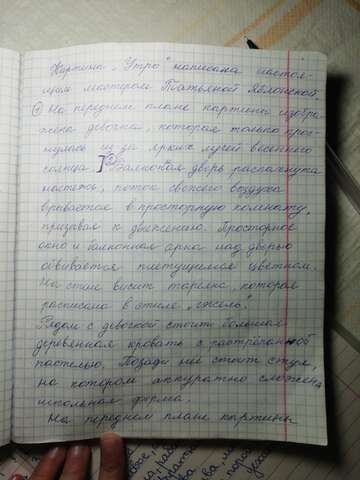 Картина „Утро" написана настоя-
щим мастером Татьяной Яблонской.
① На переднем плане картины изобра-
жена девочка, которая только прос-
нулась из за ярких лучей весеннего
солнца.] ② Балконная дверь распахнута
настежь, поток свежего воздуха
врывается в просторную комнату,
призывая к движению. Просторное
окно и балконная арка над дверью
обвивается плетущимся цветком.
На стене висит тарелка, которая
расписана в стиле „гжель".
Рядом с девочкой стоит большая
деревянная кровать с растрёпанной
постелью. Позади неё стоит стул,
на котором аккуратно сложена
школьная форма.
На переднем плане картины